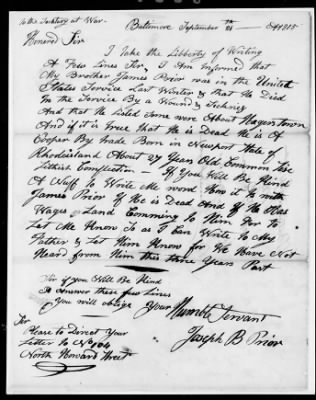 To the Secretary at War. Baltimore September 21th 1815
Honered Sir
I Take the Libberty of Writing
A Few Lines Sir, I Am Informed that
My Brother James Prior was in the United
States Service Last Winter & that He Died
In the Service By a Wound &
And that He Listed Some were About Hagers Town
And if it is true that He is Dead He is A
Cooper By trade Born in Newport State of
Rhodeisland About 27 Years Old Common Size
Litish Complection - If You Will Be Kind
A Nuff To Write Me word How it is with
James Prior If He is Dead And if He Has
Wages or Land Comming To Him Sir to
Let Me Know So as I Can Write To My
Father & Let Him Know for We Have Not
Heard from Him this three Years Past
Sir if you Will Be Kind
To Answer these few Lines
You will oblige Your Humble Servant
Joseph B Prior
Sir
Please to Direct Your
Letter to No 104
North Howard Street